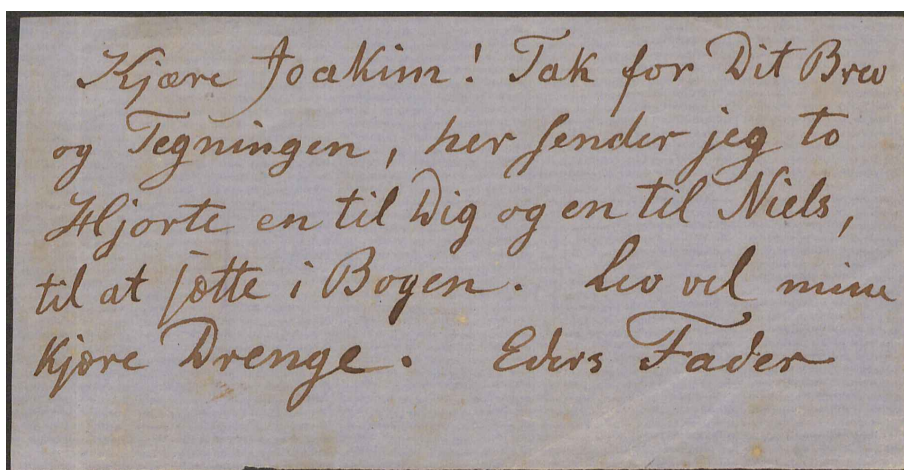 Kjære Joakim! Tak for Dit Brev
og Tegningen, her sender jeg to
Hjorte en til Dig og en til Niels,
til at sætte i Bogen. Lev vel mine
kjære Drenge. Eders Fader